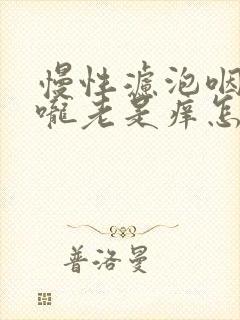 慢性滤泡咽
嚨老是痒怎
普洛曼